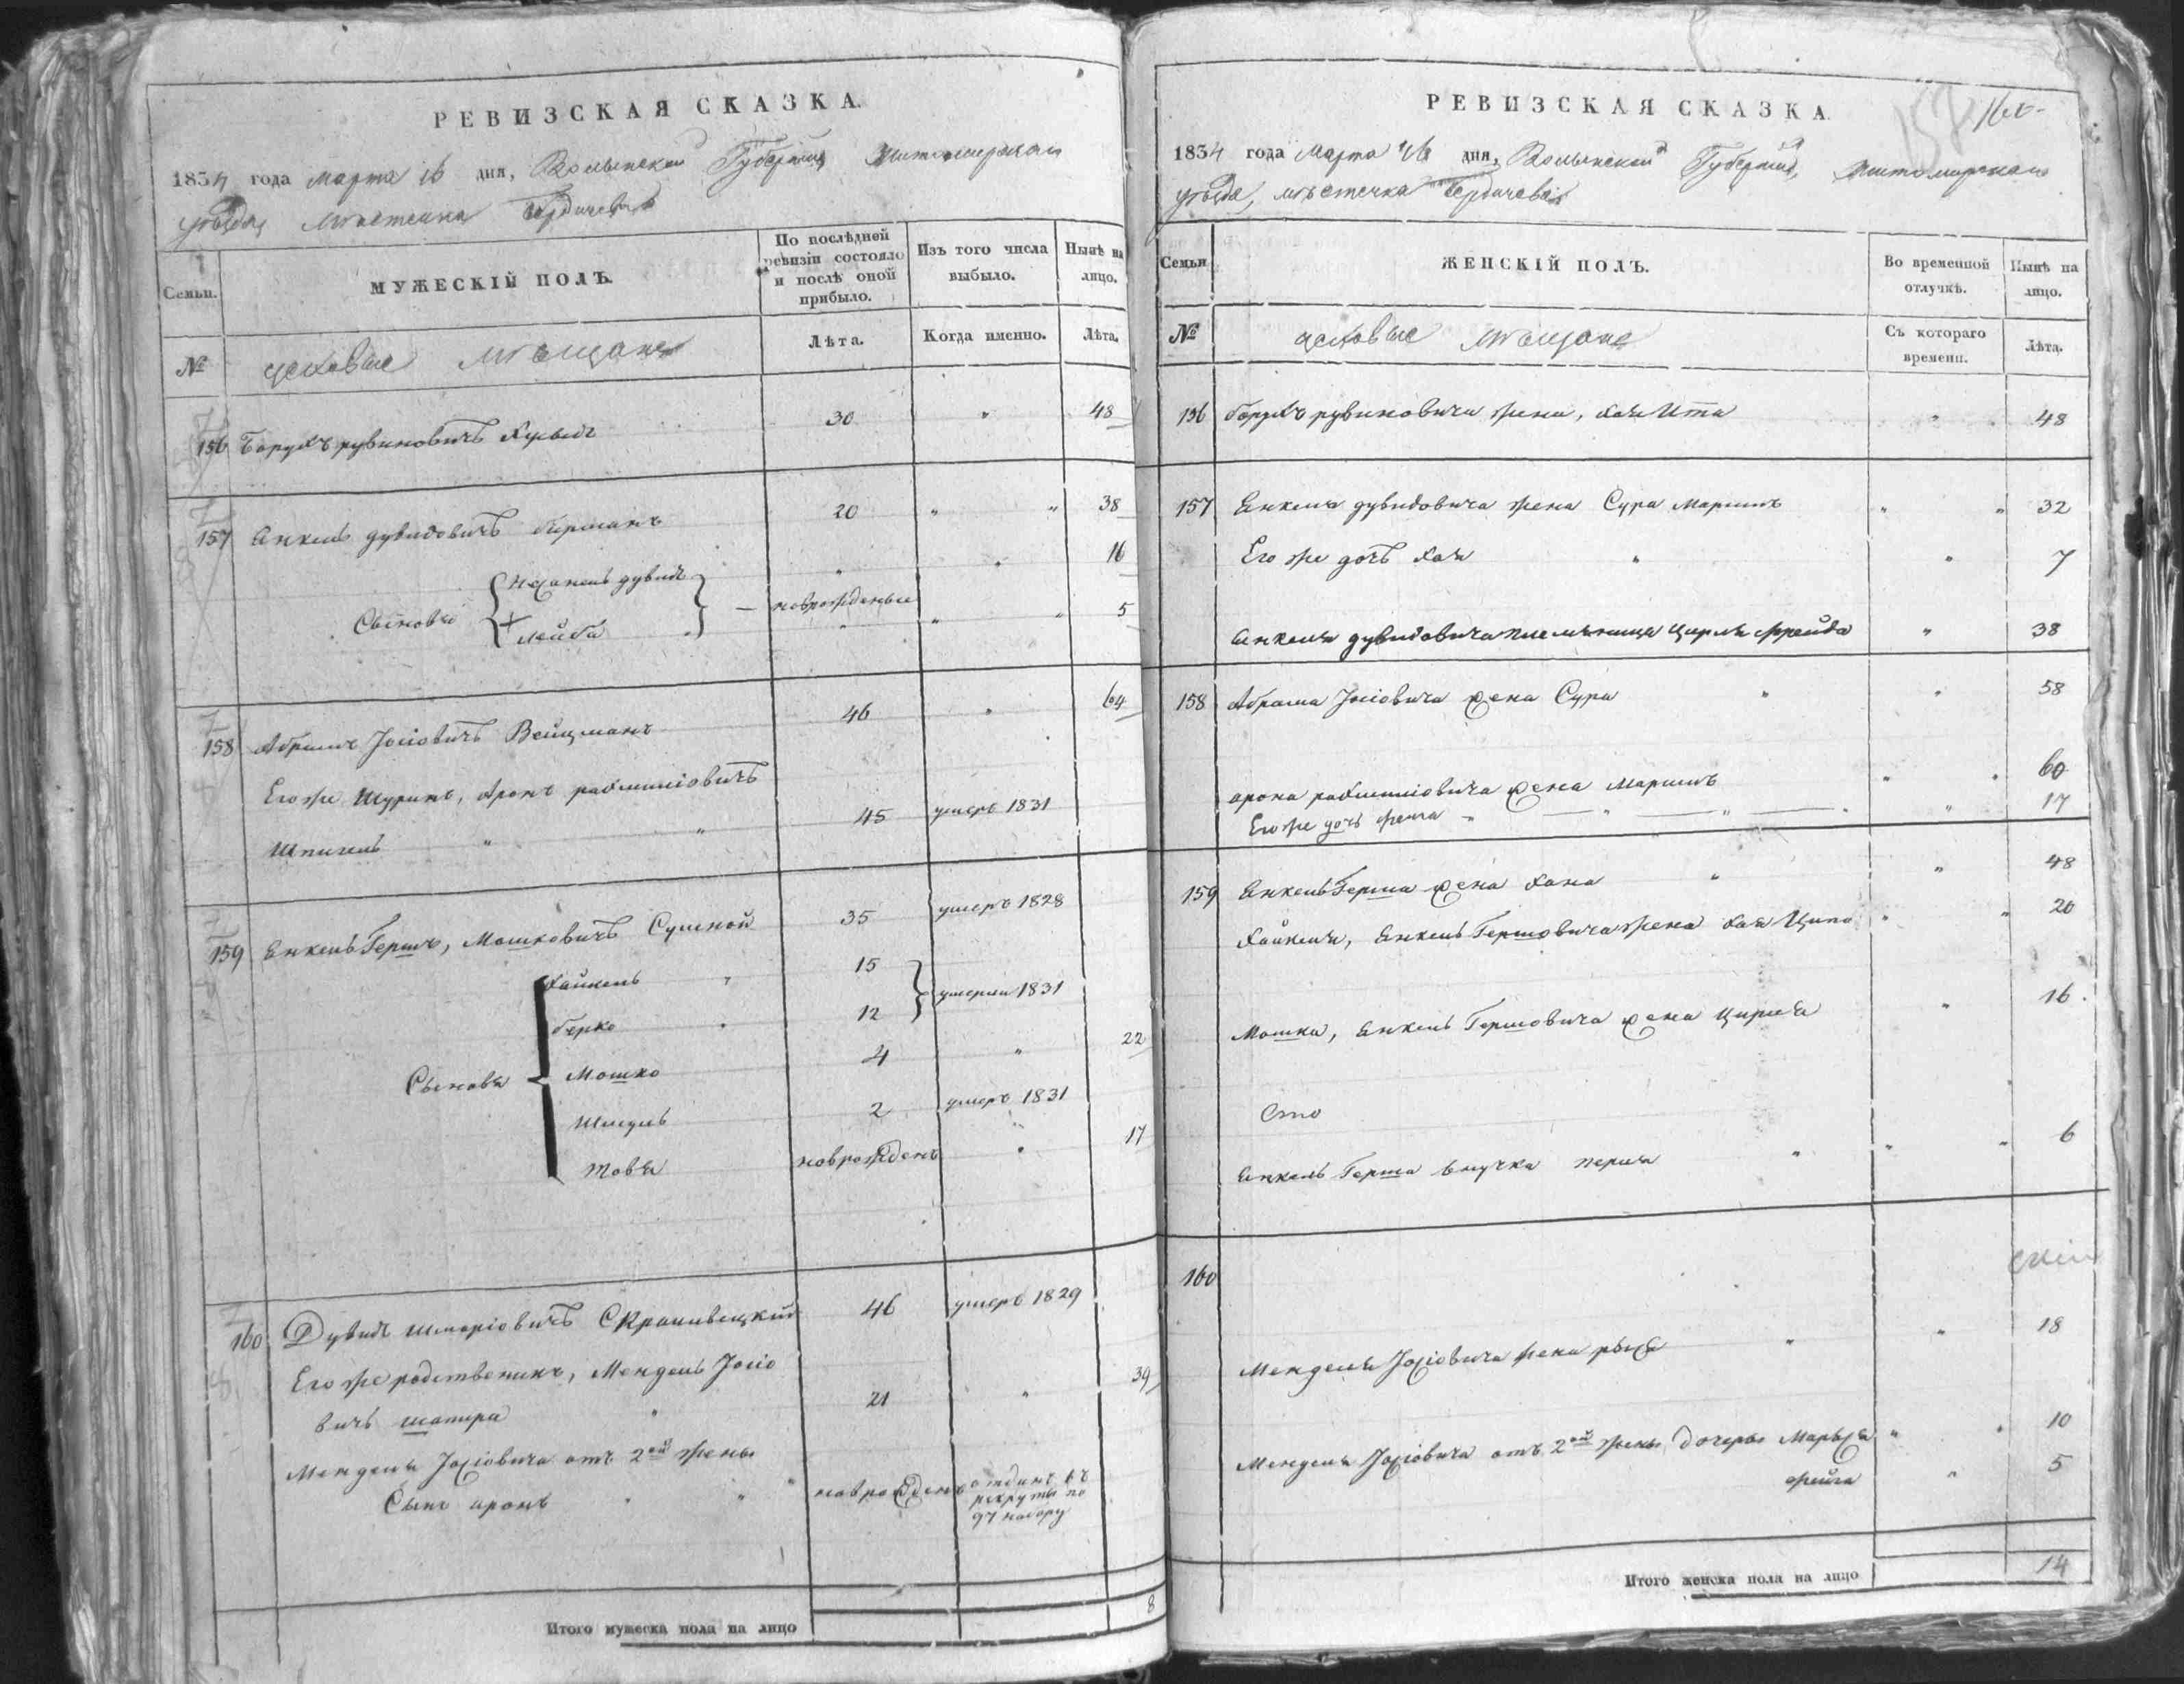 РЕВИЗСКАЯ СКАЗКА.
1834 года марта 16 дня, Волынской Губернии Житомирскаго
уѣзда, мѣстечка Бердичева
Семьи. МУЖЕСКІЙ ПОЛЪ. По послѣдней ревизіи состояло и послѣ оной прибыло. Изъ того числа выбыло. Нынѣ на лицо.
№ цеховые мѣщане Лѣта. Когда именно. Лѣта.
156 Борухъ рувиновичъ 30 " 48
157 Енкель дувидовичъ 20 " " 38
Сыновья { дувидъ " " 16
лейба } — новрожденые " " 5
158 Абрамъ Јосіовичъ Вейцманъ 46 " 64
Его же Шуринъ, Аронъ
Шпигель " " 45 умеръ 1831
159 Енкель Гершъ, Мошковичъ 35 умеръ 1828
Сыновья { Хайкель " 15
берко " 12 } умерли 1831
Мошко 4 " 22
Шмуль 2 умеръ 1831
товья новрожденъ " 17
160 Дувидъ Шмаріовичъ 46 умеръ 1829
Его же родственикъ, Мендель Јосіо
вичъ шапира " 21 " 39
Менделя Јосіовича отъ 2ой жены
Сынъ аронъ " " новрожденъ отданъ въ рекруты по 97 набору
Итого мужеска пола на лицо 8
РЕВИЗСКАЯ СКАЗКА
158 160
1834 года Марта 16 дня, Волынской Губерніи, Житомирскаго
уѣзда, мѣстечка Бердичева
Семьи ЖЕНСКІЙ ПОЛЪ. Во временной отлучкѣ. Нынѣ на лицо.
№ цеховые мѣщане Съ котораго времени. Лѣта.
156 борухъ рувиновича жена, хая Ита " 48
157 Енкеля дувидовича жена Сура Маріямъ " " 32
Его же дочь хая " " 7
Енкеля дувидовича племяница Цирля фрейда " 38
158 Абрама Јосіовича жена Сура " " 58
арона жена Маріямъ " " 60
Его же дочь фейга " — " — " — " 17
159 Енкель Герша жена хана " " 48
Хайкеля, Енкель Гершовича жена хая Ципа " " 20
Мошка, Енкель Гершовича жена Цирля " 16
Енкель Герша внучка перля " " " 6
160
Менделя Јосіовича жена " " 18
Менделя Јосіовича отъ 2ой жены дочеры Марьяся " " 10
фейга " 5
Итого женска пола на лицо 14